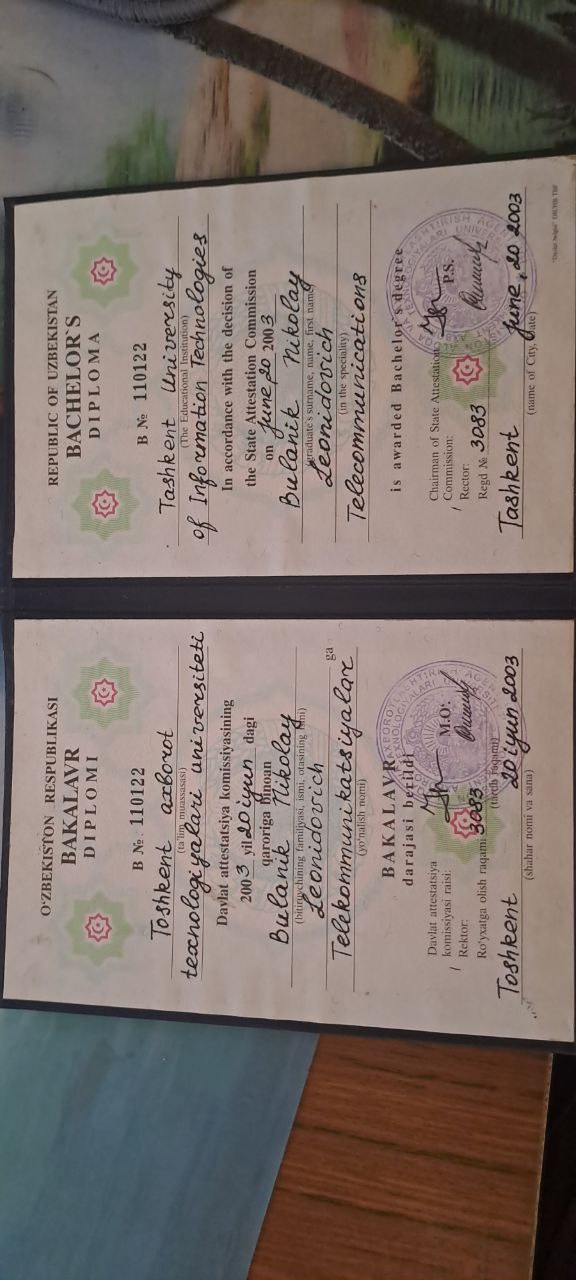 O'ZBEKISTON RESPUBLIKASI
BAKALAVR
DIPLOMI
B № 110122
Toshkent axborot
(ta'lim muassasasi)
texnologiyalari universiteti
Davlat attestatsiya komissiyasining
2003 yil 20 iyun dagi
qaroriga binoan
Bulanik Nikolay
(bitiruvchining familiyasi, ismi, otasining ismi)
Leonidovich ga
Telekommunikatsiyalar
(yo'nalish nomi)
BAKALAVR
darajasi berildi
Davlat attestatsiya
komissiyasi raisi:
Rektor: M.O:
Ro'yxatga olish raqami 3083
(tartib raqami)
Toshkent 20 iyun 2003
(shahar nomi va sana)
REPUBLIC OF UZBEKISTAN
BACHELOR'S
DIPLOMA
B № 110122
Tashkent University
(The Educational Institution)
of Information Technologies
In accordance with the decision of
the State Attestation Commission
on june, 20 2003
Bulanik Nikolay
(graduate's surname, name, first name)
Leonidovich
(in the speciality)
Telecommunications
is awarded Bachelor's degree
Chairman of State Attestation
Commission:
Rector: P.S.
Regd № 3083
Tashkent june, 20 2003
(name of City, date)